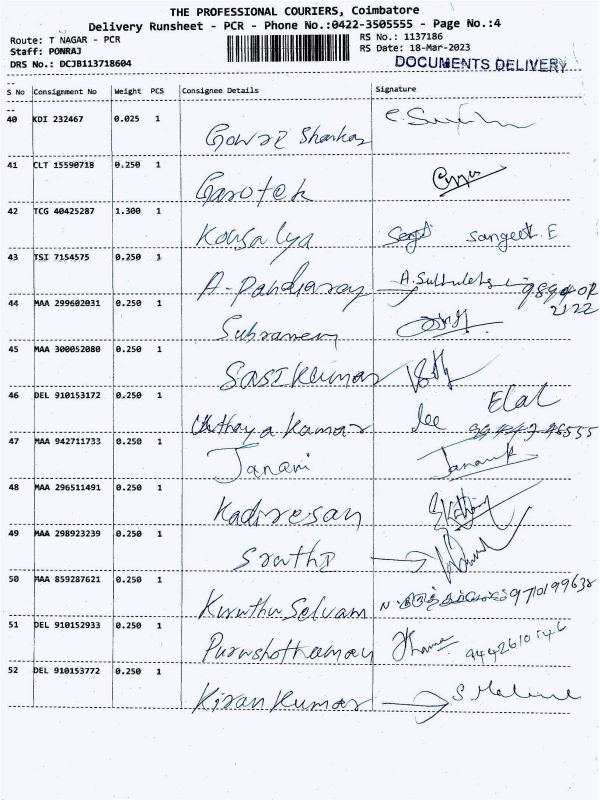 THE PROFESSIONAL COURIERS, Coimbatore
Delivery Runsheet - PCR - Phone No.:0422-3505555 - Page No.:4
Route: T NAGAR - PCR RS No.: 1137186
Staff: PONRAJ RS Date: 18-Mar-2023
DRS No.: DCJB113718604 DOCUMENTS DELIVERY
S No Consignment No Weight PCS Consignee Details Signature
40 KDI 232467 0.025 1
Gowri Shankar
41 CLT 15590718 0.250 1
Garotek
42 TCG 40425287 1.300 1
Kousalya Sangeet. E
43 TSI 7154575 0.250 1
A-Pandiaraj
44 MAA 299602031 0.250 1
Subramani
45 MAA 300052080 0.250 1
Sasikumar
46 DEL 910153172 0.250 1
Uthayakumar
47 MAA 942711733 0.250 1
Janani
48 MAA 296511491 0.250 1
Kadiresan
49 MAA 298923239 0.250 1
Sruthi
50 MAA 859287621 0.250 1
Kuruthu Selvam 9710199638
51 DEL 910152933 0.250 1
Purushothaman
52 DEL 910153772 0.250 1
Kiran Kumar